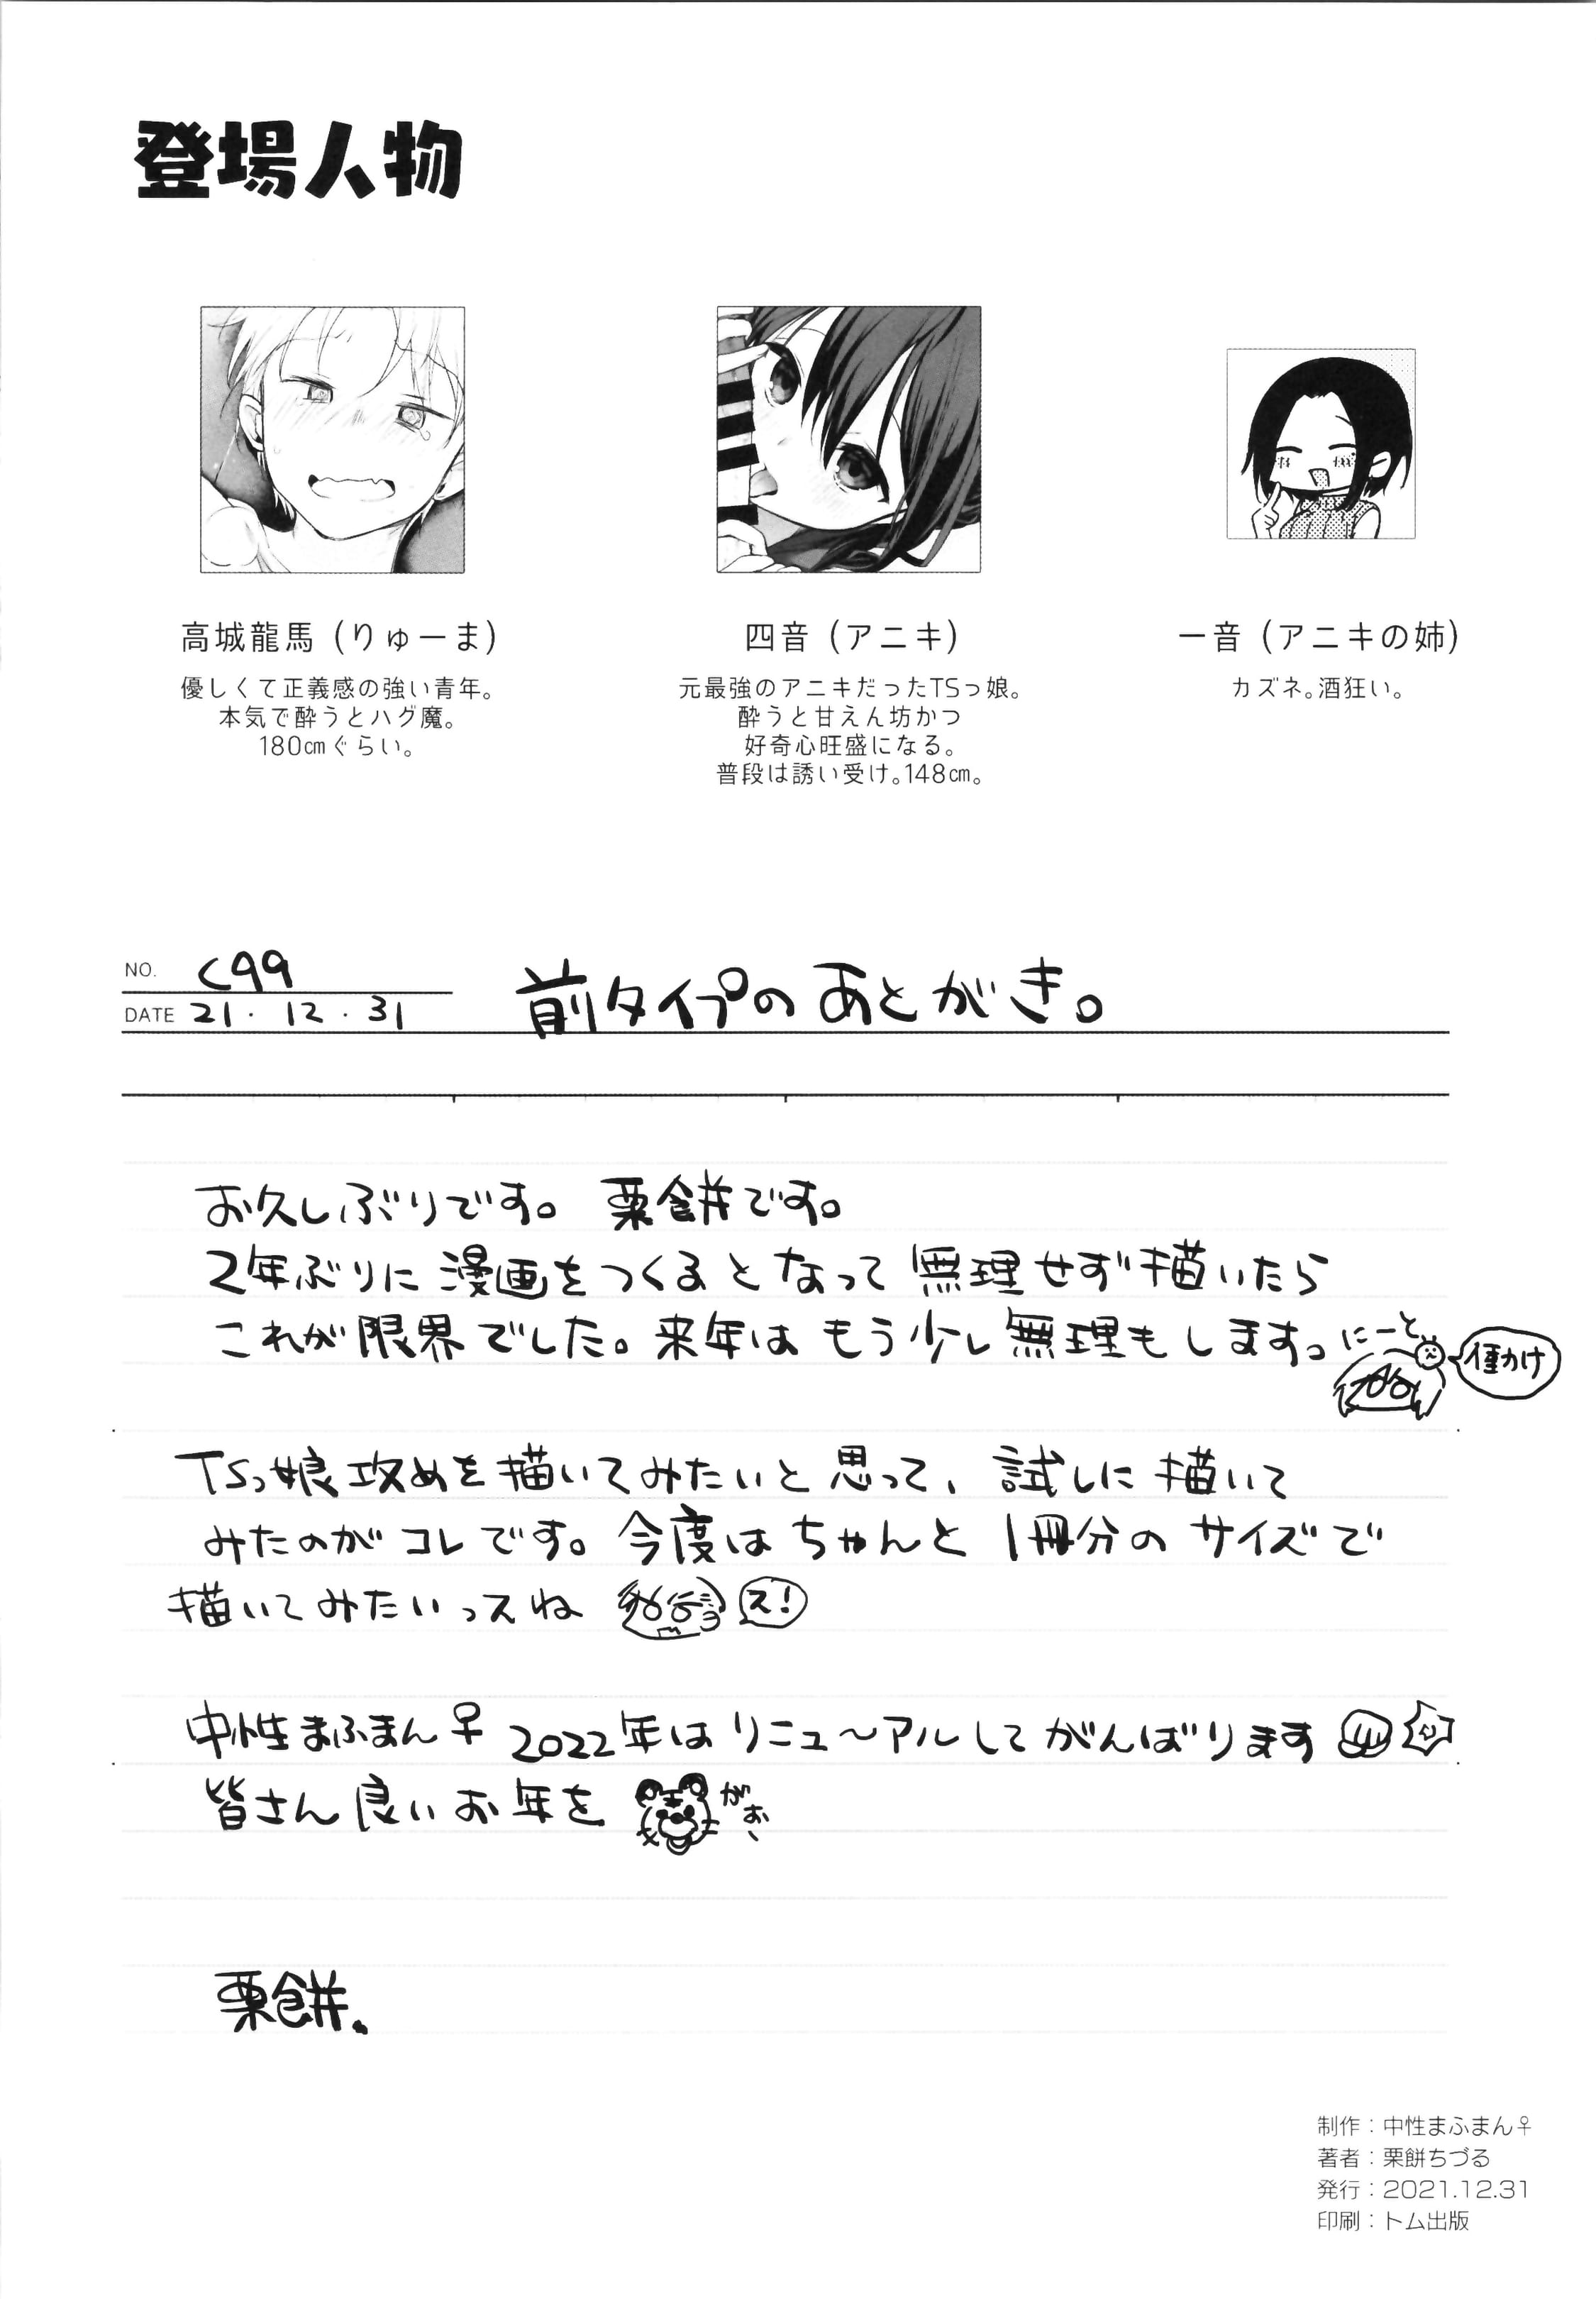 登場人物
高城龍馬 (りゅーま)
優しくて正義感の強い青年。
本気で酔うとハグ魔。
180㎝ぐらい。
四音 (アニキ)
元最強のアニキだったTSっ娘。
酔うと甘えん坊かつ
好奇心旺盛になる。
普段は誘い受け。148㎝。
一音 (アニキの姉)
カズネ。酒狂い。
NO. C99
DATE 21・12・31
前タイプのあとがき。
お久しぶりです。 栗餅です。
2年ぶりに漫画をつくるとなって無理せず描いたら
これが限界でした。来年はもう少し無理もします。
にーと
種かけ
TSっ娘攻めを描いてみたいと思って、試しに描いて
みたのがコレです。今度はちゃんと1冊分のサイズで
描いてみたいっスね
え!
中性まふまん♀ 2022年はリニュ〜アルしてがんばります
皆さん良いお年を
がお〜
栗餅。
制作：中性まふまん♀
著者：栗餅ちづる
発行：2021.12.31
印刷：トム出版